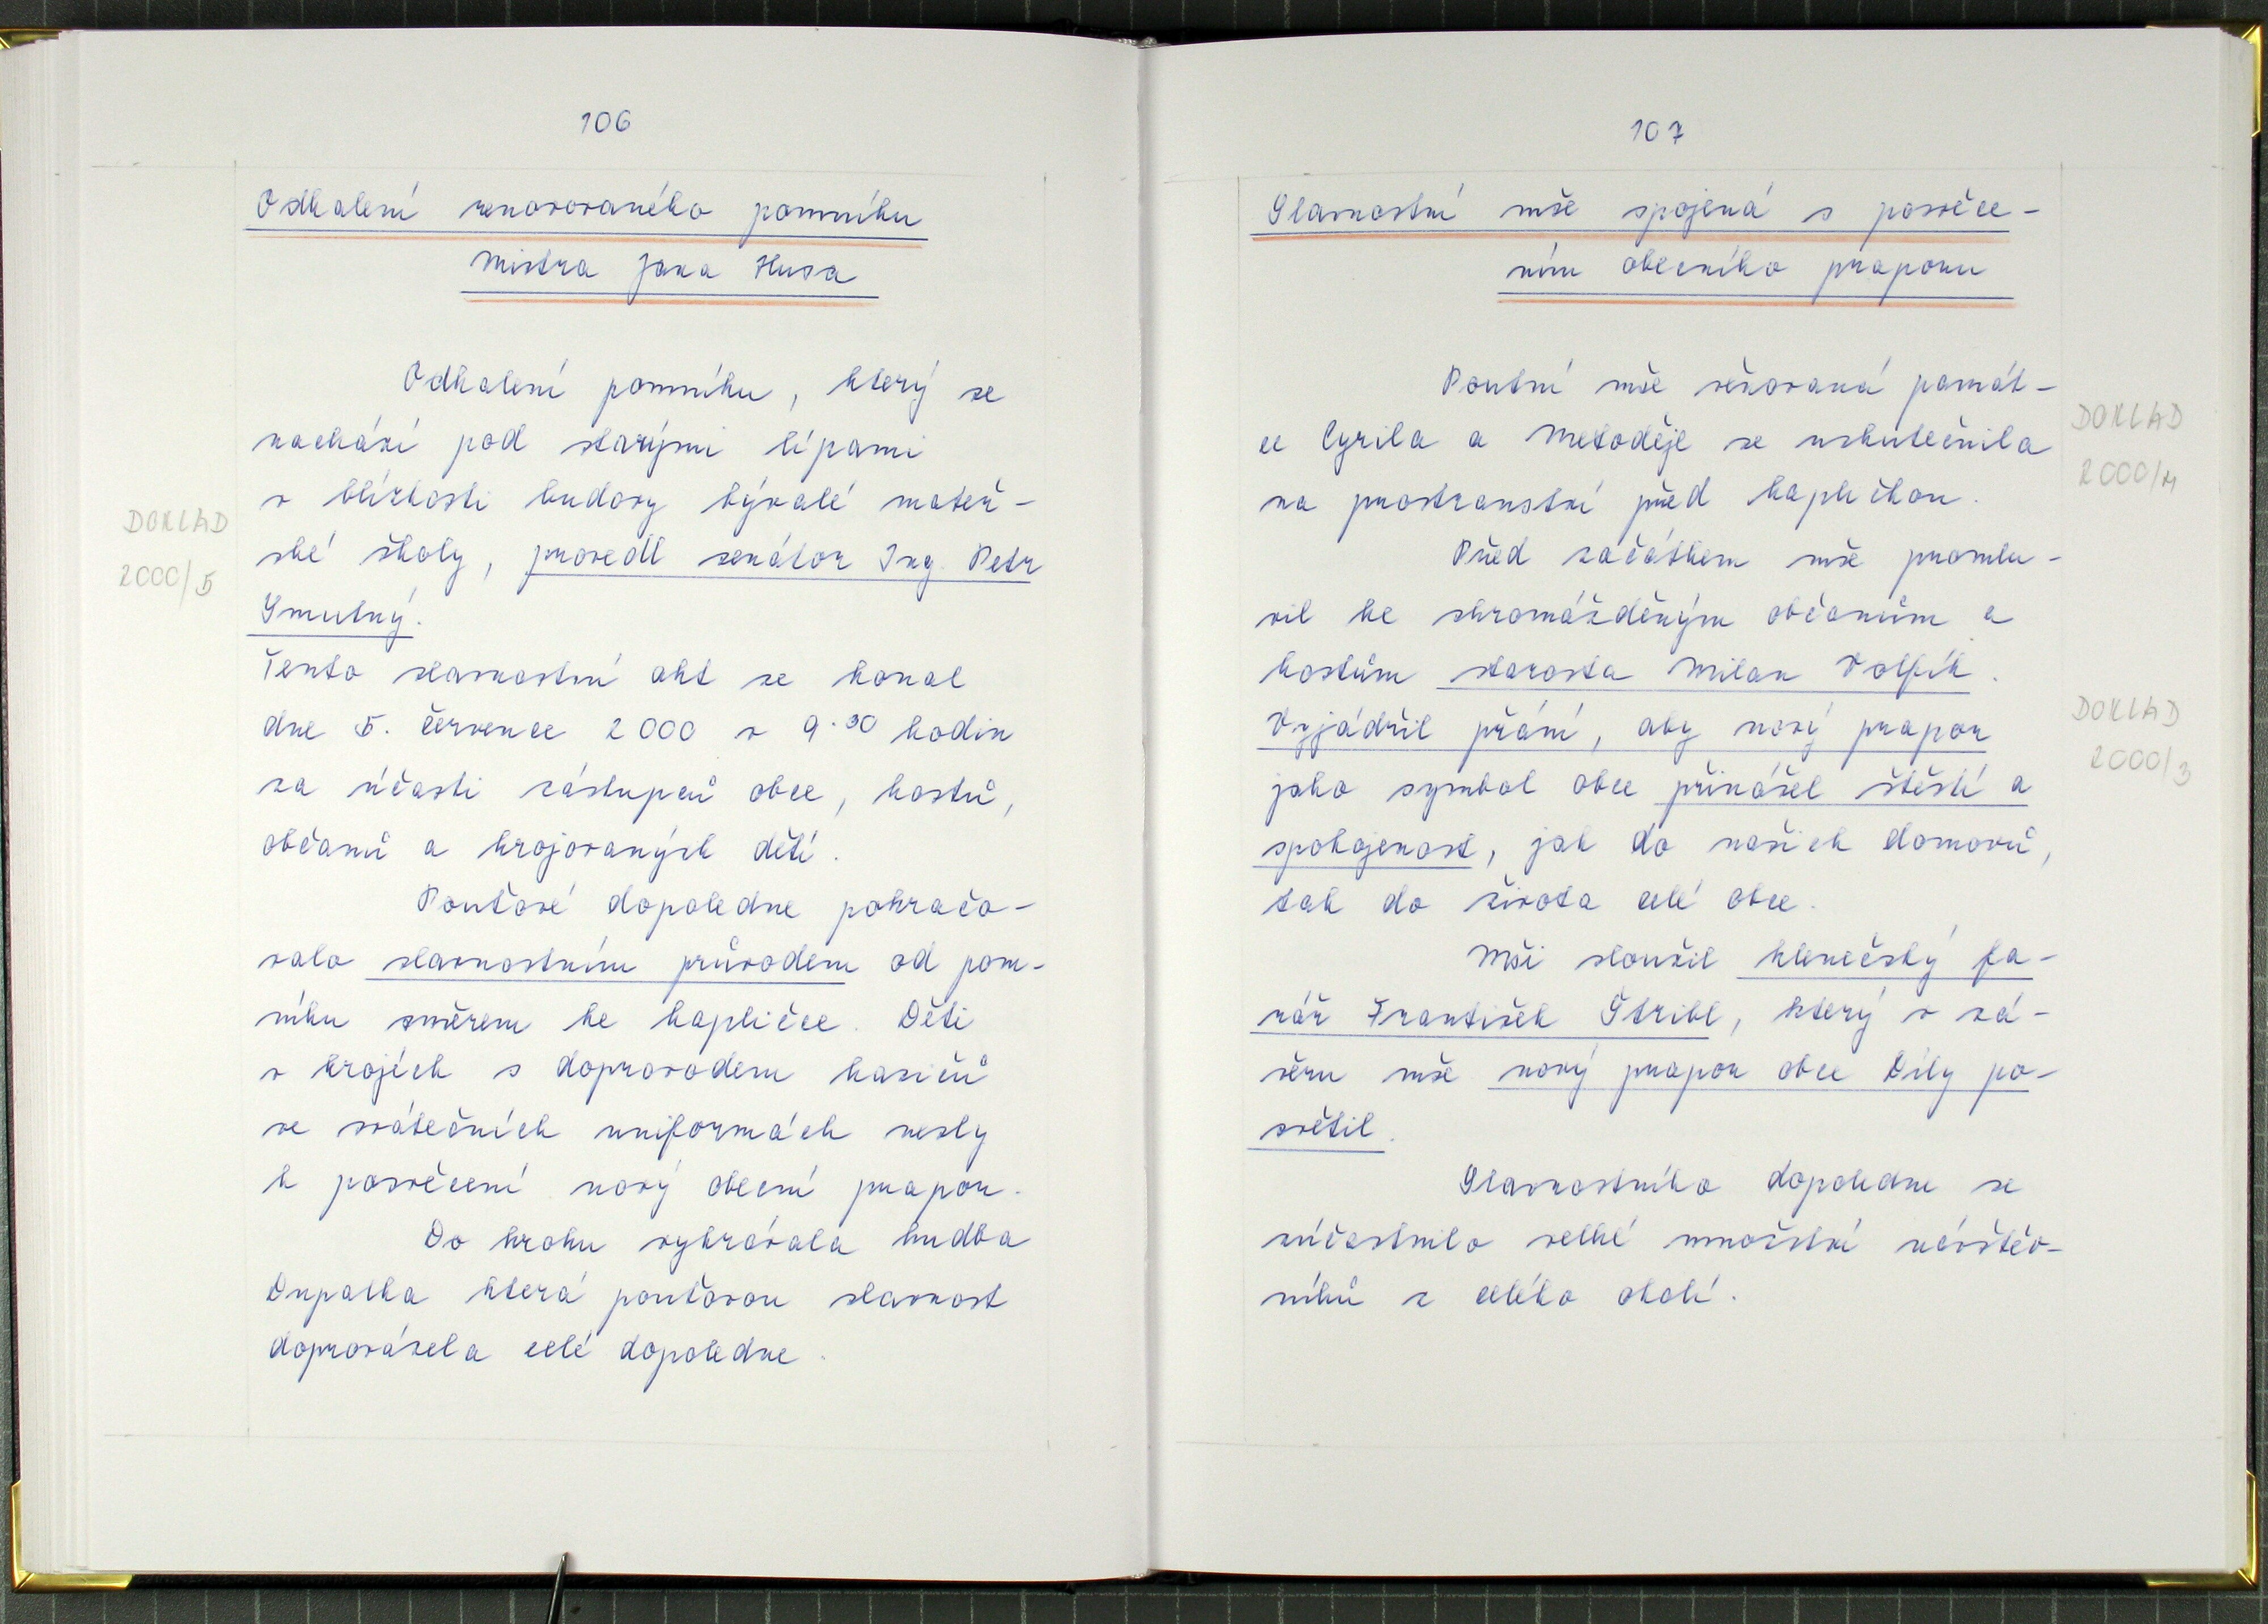 106
Odhalení renovovaného pomníku
Mistra Jana Husa
Odhalení pomníku, který se
nachází pod starými lípami
v blízkosti budovy bývalé mateř-
ské školy, provedl senátor Ing. Petr
Smutný.
Tento slavnostní akt se konal
dne 5. července 2000 v 9.30 hodin
za účasti zástupců obce, hostů,
občanů a krojovaných dětí.
Pouťové dopoledne pokračo-
valo slavnostním průvodem od pom-
níku směrem ke kapličce. Děti
v krojích s doprovodem hasičů
ve svátečních uniformách nesly
k posvěcení nový obecní prapor.
Do kroku vyhrávala hudba
Dupalka která pouťovou slavnost
doprovázela celé dopoledne.
DOKLAD
2000/5
107
Slavnostní mše spojená s posvěce-
ním obecního praporu
Poutní mše věnovaná památ-
ce Cyrila a Metoděje se uskutečnila
na prostranství před kapličkou.
Před začátkem mše promlu-
vil ke shromážděným občanům a
hostům starosta Milan Volfík.
Vyjádřil přání, aby nový prapor
jako symbol obce přinášel štěstí a
spokojenost, jak do našich domovů,
tak do života celé obce.
Mši sloužil klenečský fa-
rář František Štribl, který v zá-
věru mše nový prapor obce Díly po-
světil.
Slavnostního dopoledne se
zúčastnilo velké množství návštěv-
níků z celého okolí.
DOKLAD
2000/4
DOKLAD
2000/3